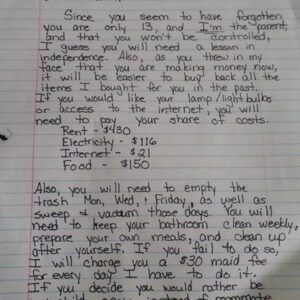 Since you seem to have forgotten
you are only 13, and I'm the parent,
and that you won't be controlled,
I guess you will need a lesson in
independence. Also, as you threw in my
face that you are making money now,
it will be easier to buy back all the
items I bought for you in the past.
If you would like your lamp/light bulbs
or access to the internet, you will
need to pay your share of costs.
Rent - $430
Electricity - $116
Internet - $21
Food - $150
Also, you will need to empty the
trash Mon, Wed, & Friday, as well as
sweep & vacuum those days. You will
need to keep your bathroom clean weekly,
prepare your own meals, and clean up
after yourself. If you fail to do so,
I will charge you a $30 maid fee
for every day I have to do it.
If you decide you would rather be